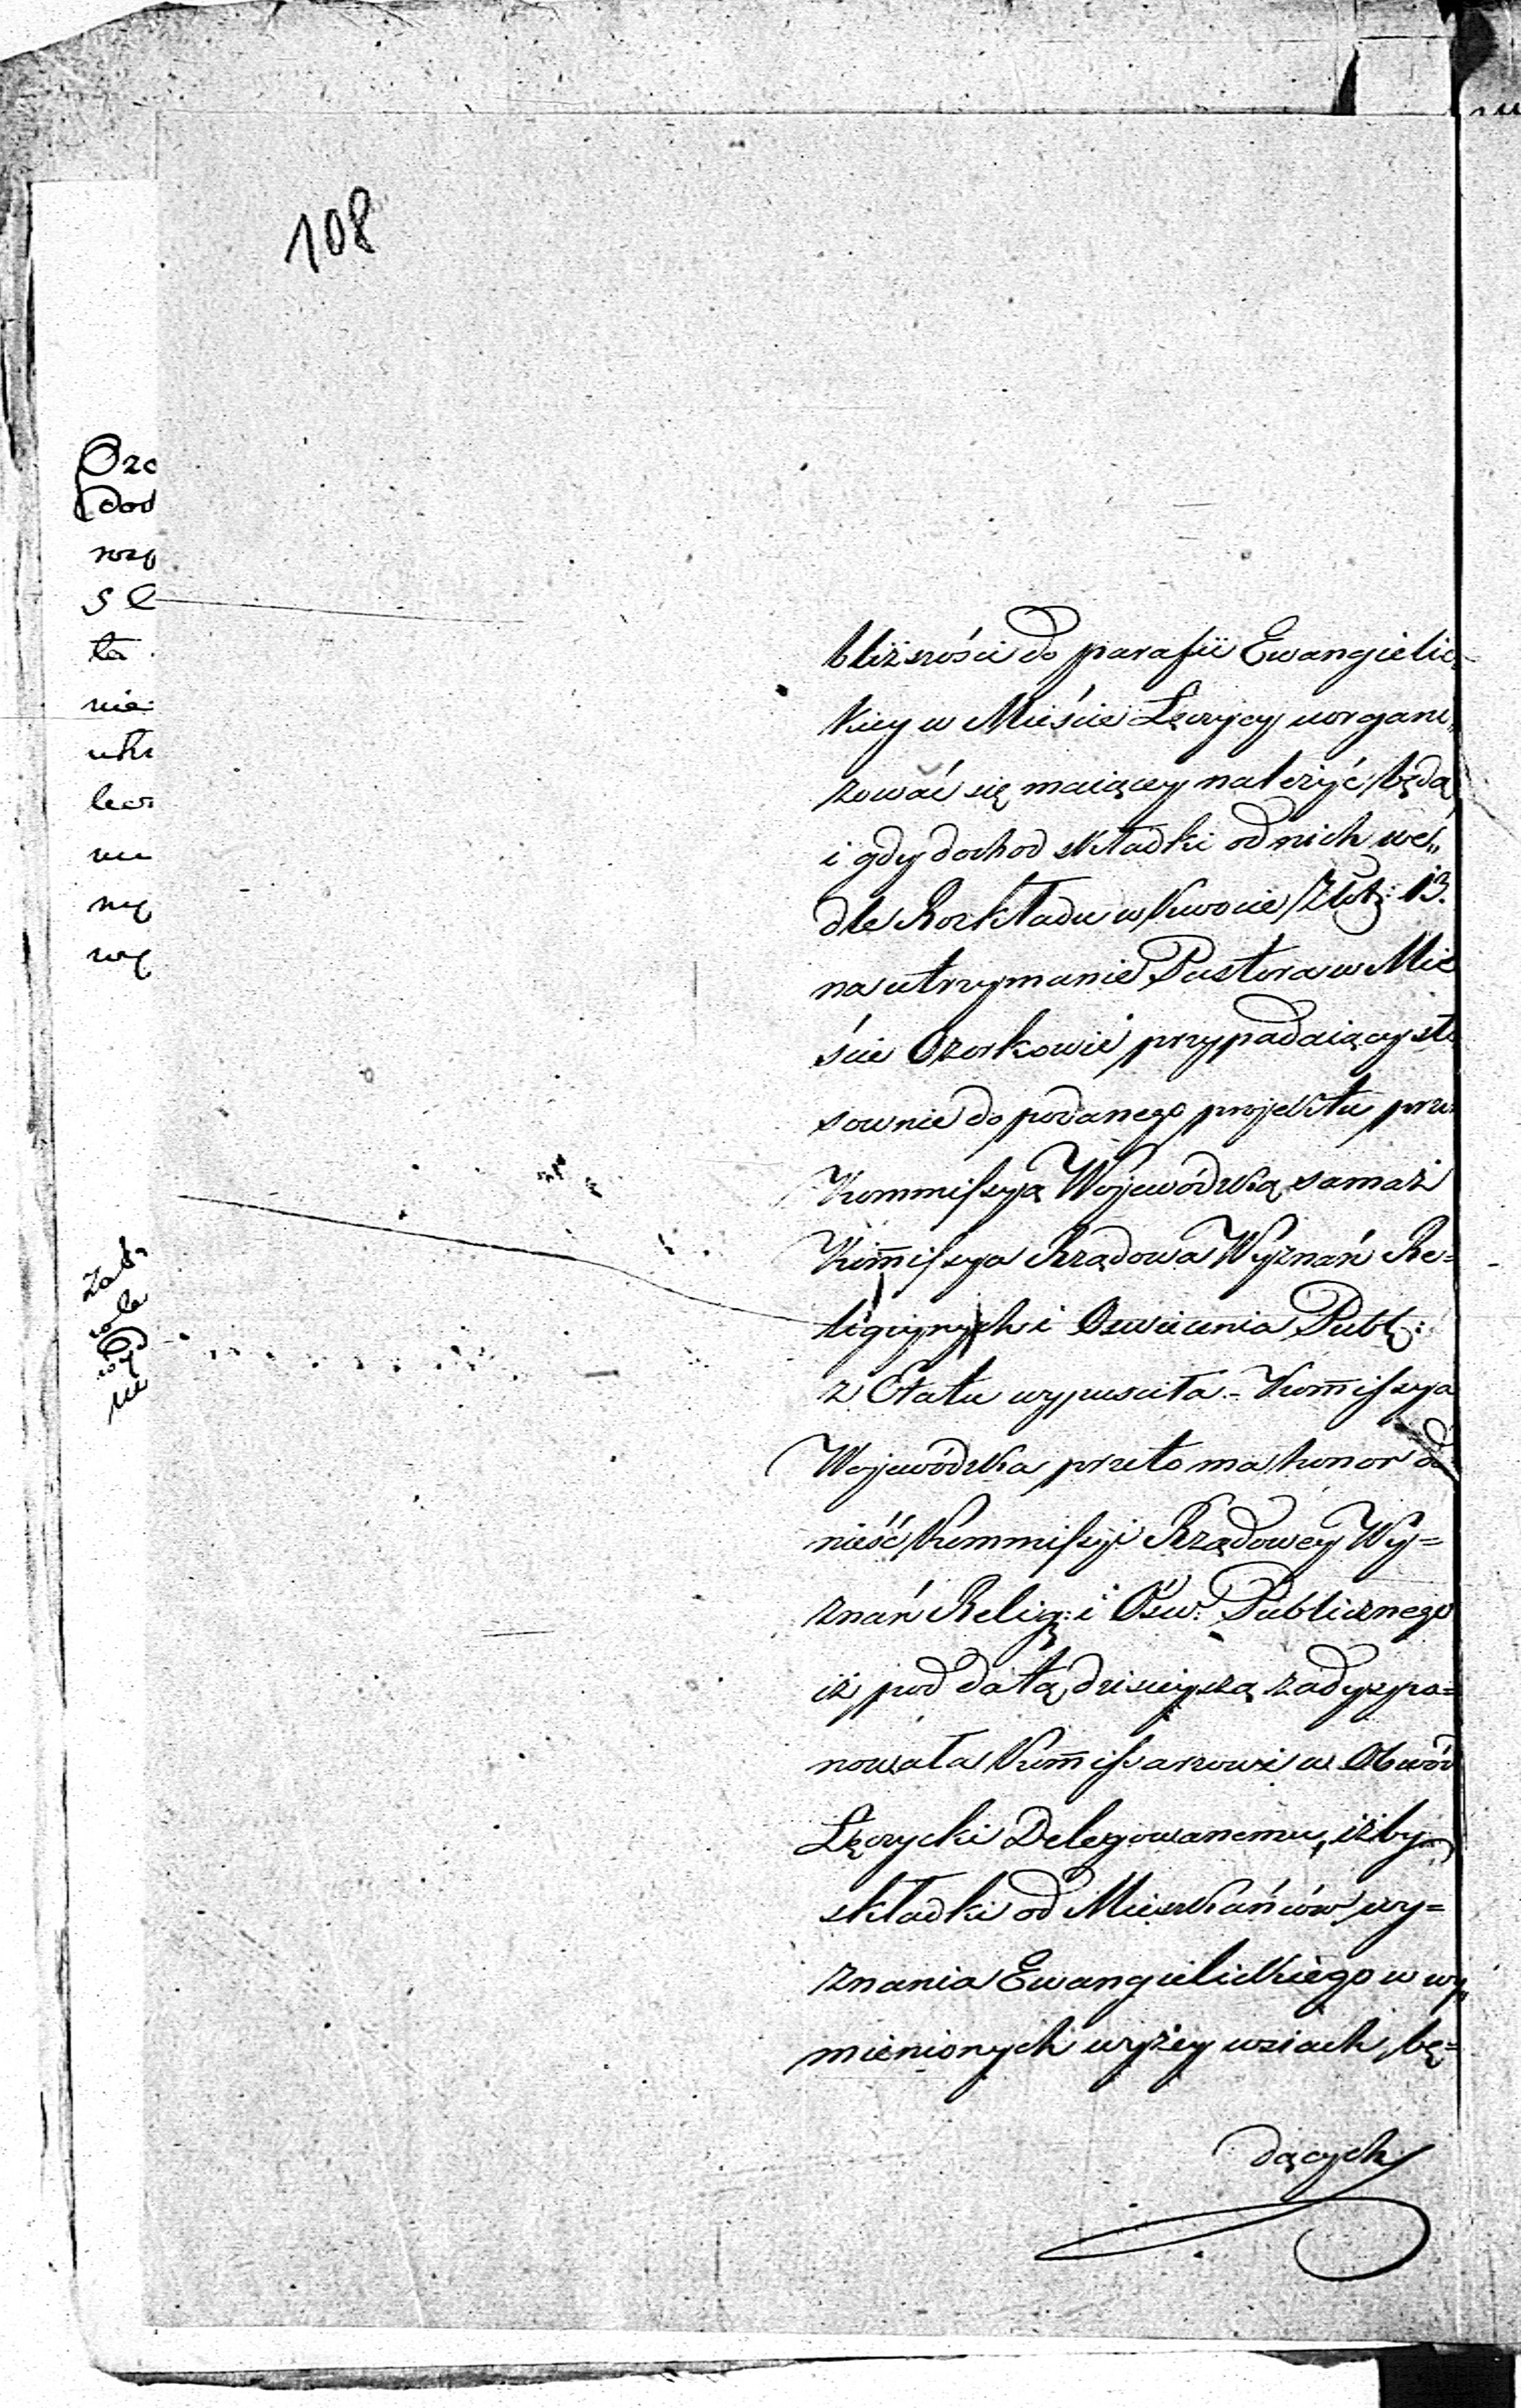 108
bliższości do parafii Ewangielic„
kiey w Mieście Łęczycy uorgani„
zować się maiącey należyć będą
i gdy dochod składki od nich we„
dle Rozkładu w kwocie Złotz: 13.
na utrzymanie Pastora w Mie
ście Ozorkowie przypadaiący sto
sownie do podanego projektu prze
Kommissyą Wojewódzką samaż
Kom̅issya Rządowa Wyznań Re=
ligiynych i Oświecenia Publ:
z Etatu wypuściła - Kom̅issya
Wojewódzka przeto ma honor do
nieść Kommissyi Rządowey Wy=
znań Relig: i Ośw: Publicznego
iż pod datą dzisieyszą zadyspo=
nowała Kom̅issarzowi w Obwód
Łęczycki Delegowanemu, iżby
składki od Mieszkańców wy=
znania Ewangielickiego w wy„
mienionych wyżey wsiach, bę=
dących
Ozo
dod
rozp
ta
nie